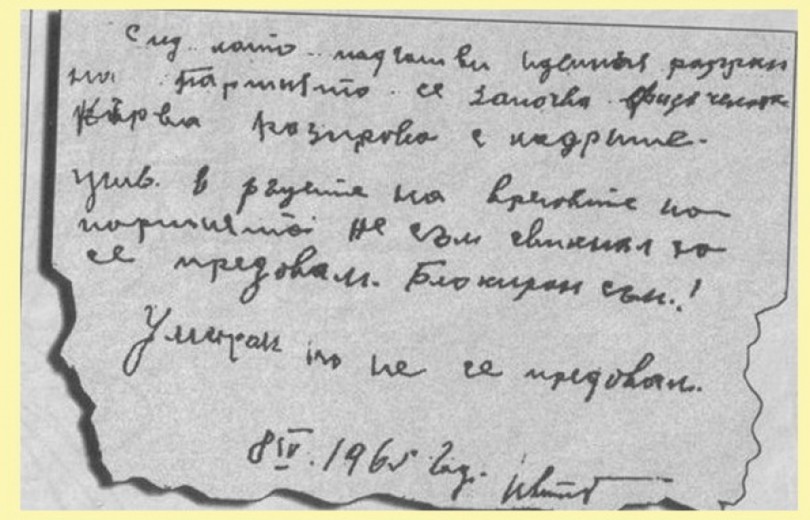 След като надчовеш идейния разгром
на Партията се започва физическа
кървава разправа с кадрите.
Жив в ръцете на враговете на
партията не съм свикнал да
се предавам. Блокиран съм.!
Умирам но не се предавам.
8 IV. 1965 год.